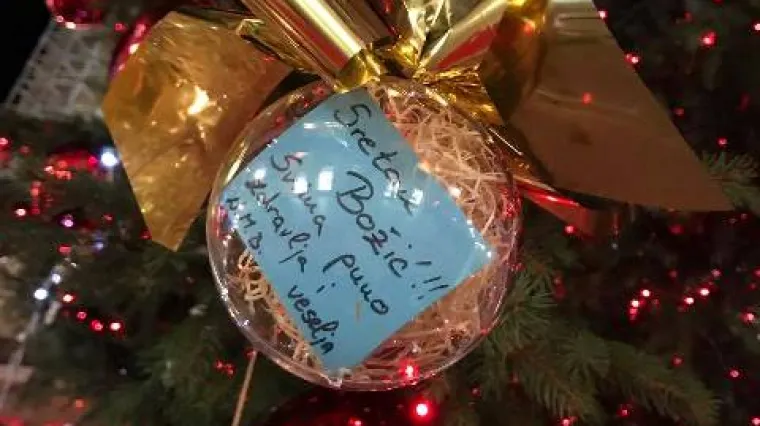 Sretan
Božić!!!
Svima puno
zdravlja i veselja
N.M.B.